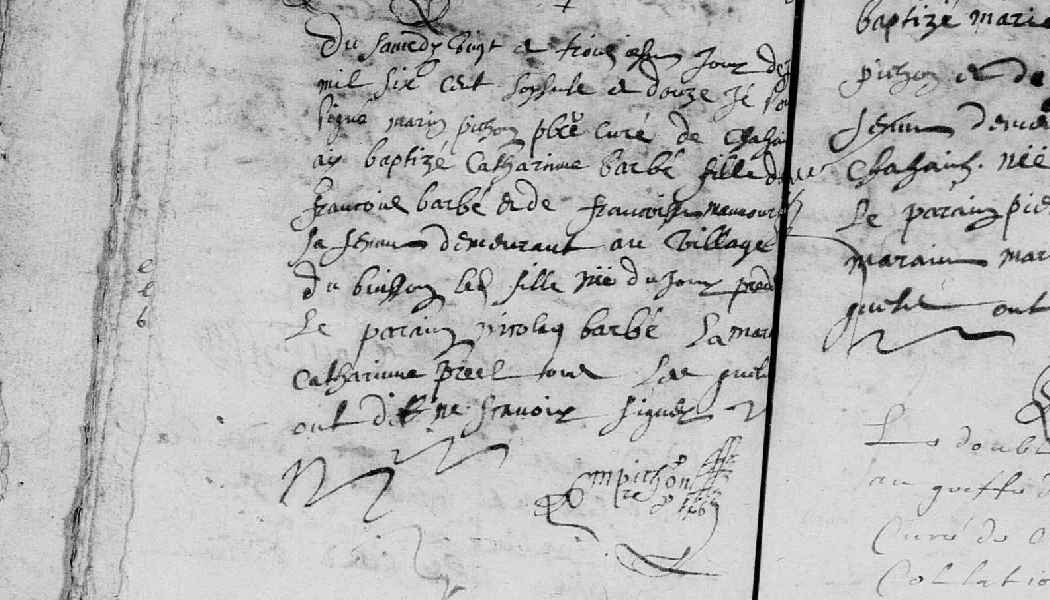 Du samedy vingt et troisiesme jour de
mil six cent soysente et douze Jé sou
signé marin pichon pbre curé de Chahai
ay baptizé Catharinne barbé fille de
francois barbé et de francoise
sa femme demeurant au village
du buisson led fille née du jour pred
Le parain nicolas barbé La mar
Catharinne preel tous Les quels
ont dit ne scavoir signer
mpichon
baptizé marie
pichon et de
femme demeu
Chahains née
Le parain pie
maraine mar
quels ont
Le doubl
au greffe
Curé de
Collatio